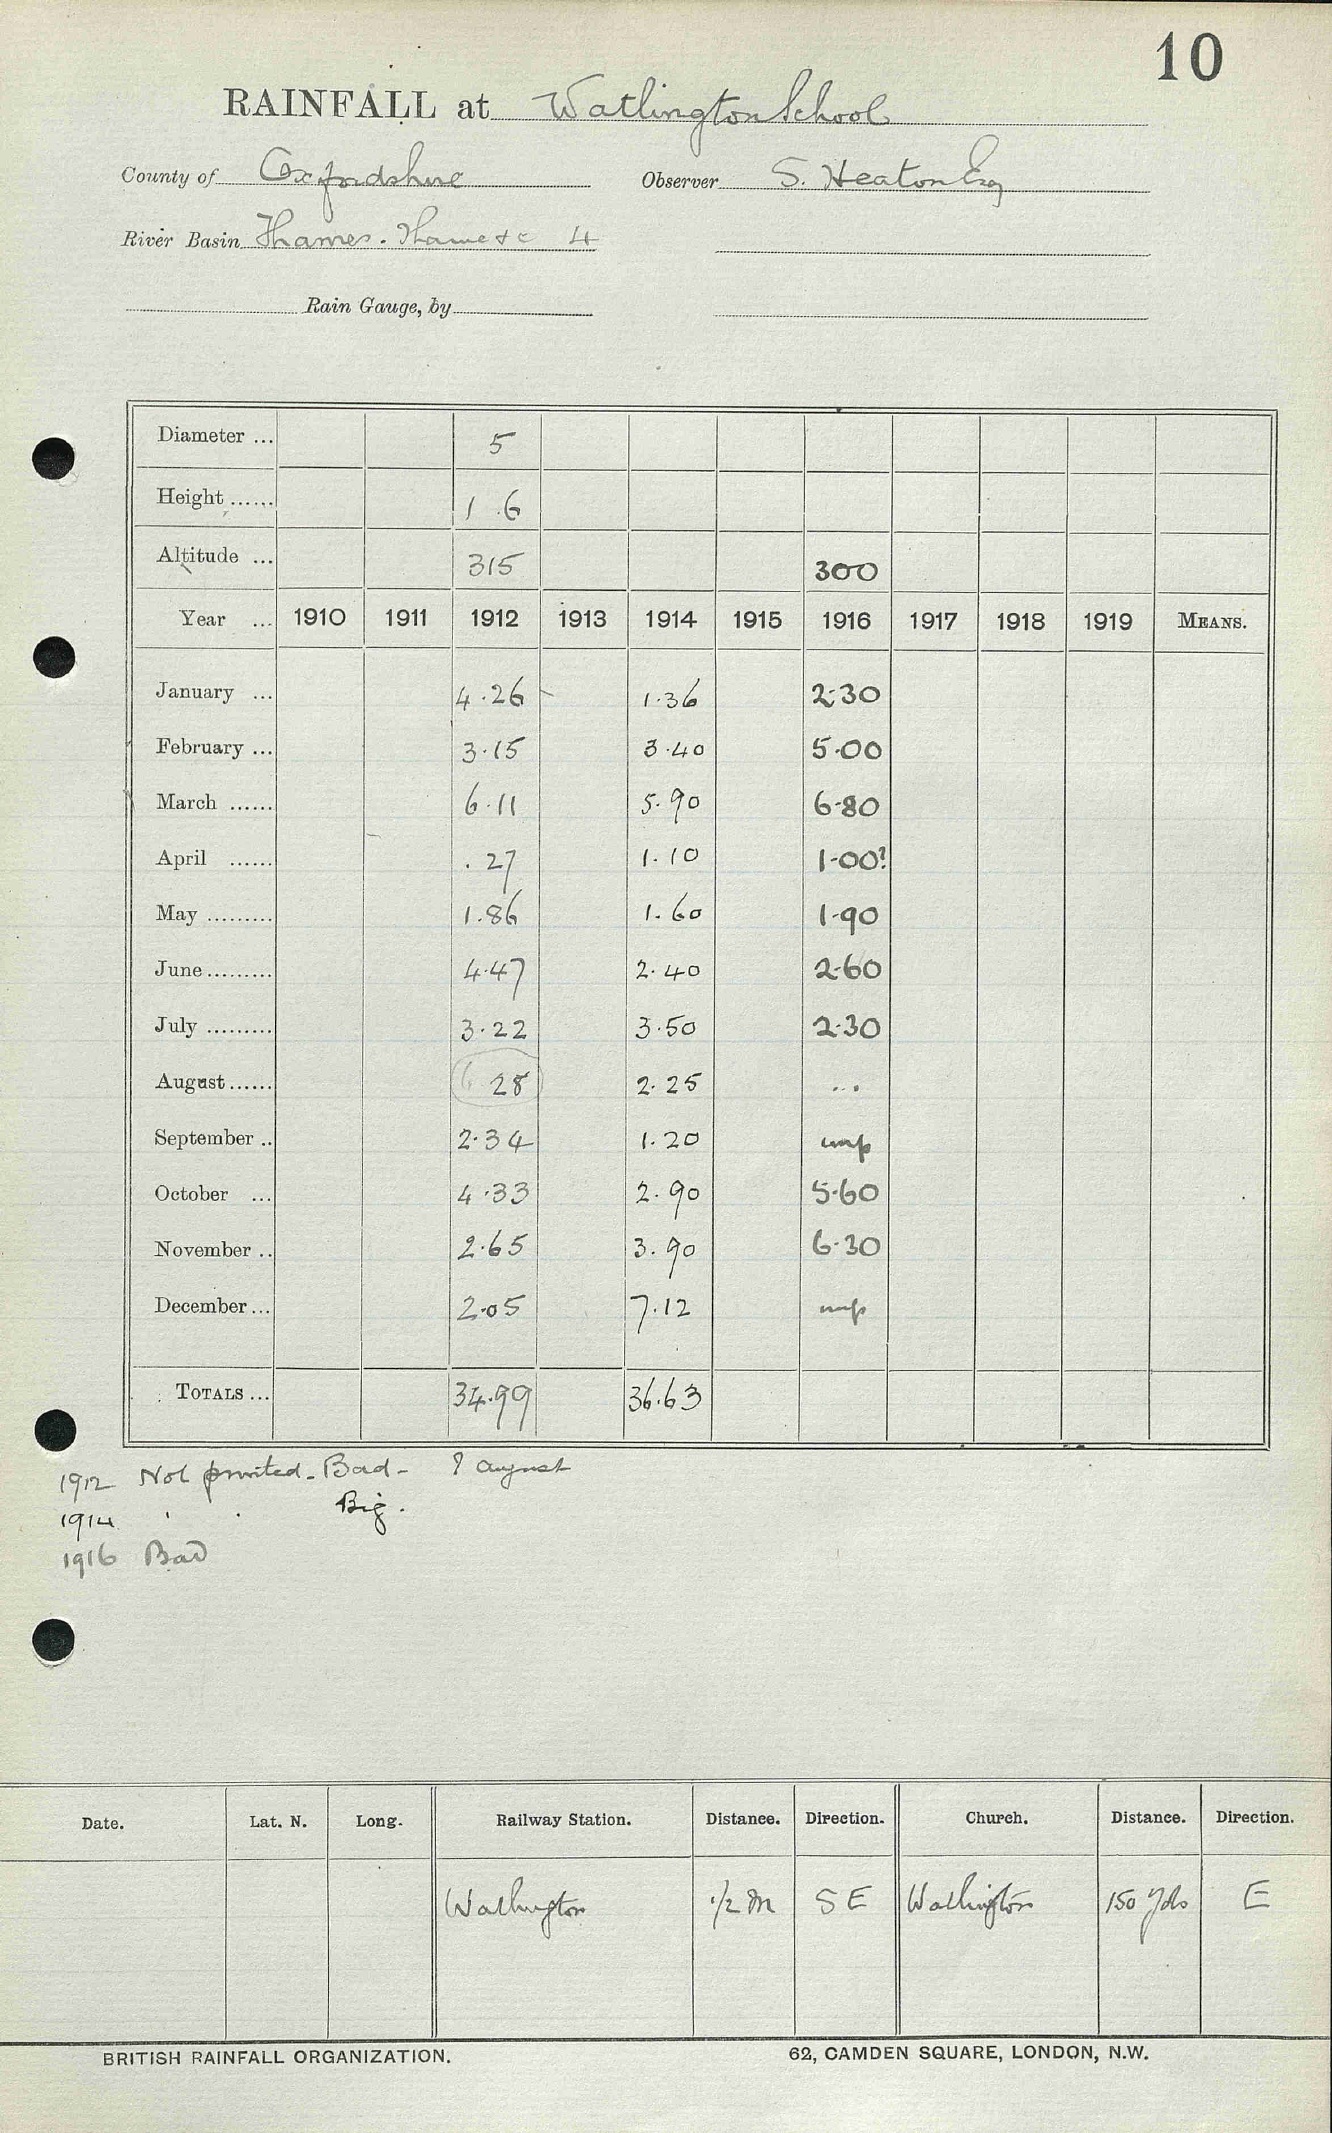 10
RAINFALL at Watlington School
County of Oxfordshire Observer S. Heaton Esq
River Basin Thames. Thame &c 4
Rain Gauge, by
Diameter ... 5
Height ...... 1 .6
Altitude ... 315 300
Year ... 1910 1911 1912 1913 1914 1915 1916 1917 1918 1919 MEANS.
January ... 4.26 1.36 2.30
February ... 3.15 3.40 5.00
March ...... 6.11 5.90 6.80
April ...... .27 1.10 1.00?
May ......... 1.86 1.60 1.90
June ......... 4.47 2.40 2.60
July ......... 3.22 3.50 2.30
August ...... 28 2.25 ...
September .. 2.34 1.20 imp
October ... 4.33 2.90 5.60
November .. 2.65 3.90 6.30
December ... 2.05 7.12 imp
TOTALS ... 34.99 36.63
1912 Not printed - Bad - ? august
1914 " " Big.
1916 Bad
Date. Lat. N. Long. Railway Station. Distance. Direction. Church. Distance. Direction.
Watlington 1/2 m S E Watlington 150 yds E
BRITISH RAINFALL ORGANIZATION. 62, CAMDEN SQUARE, LONDON, N.W.